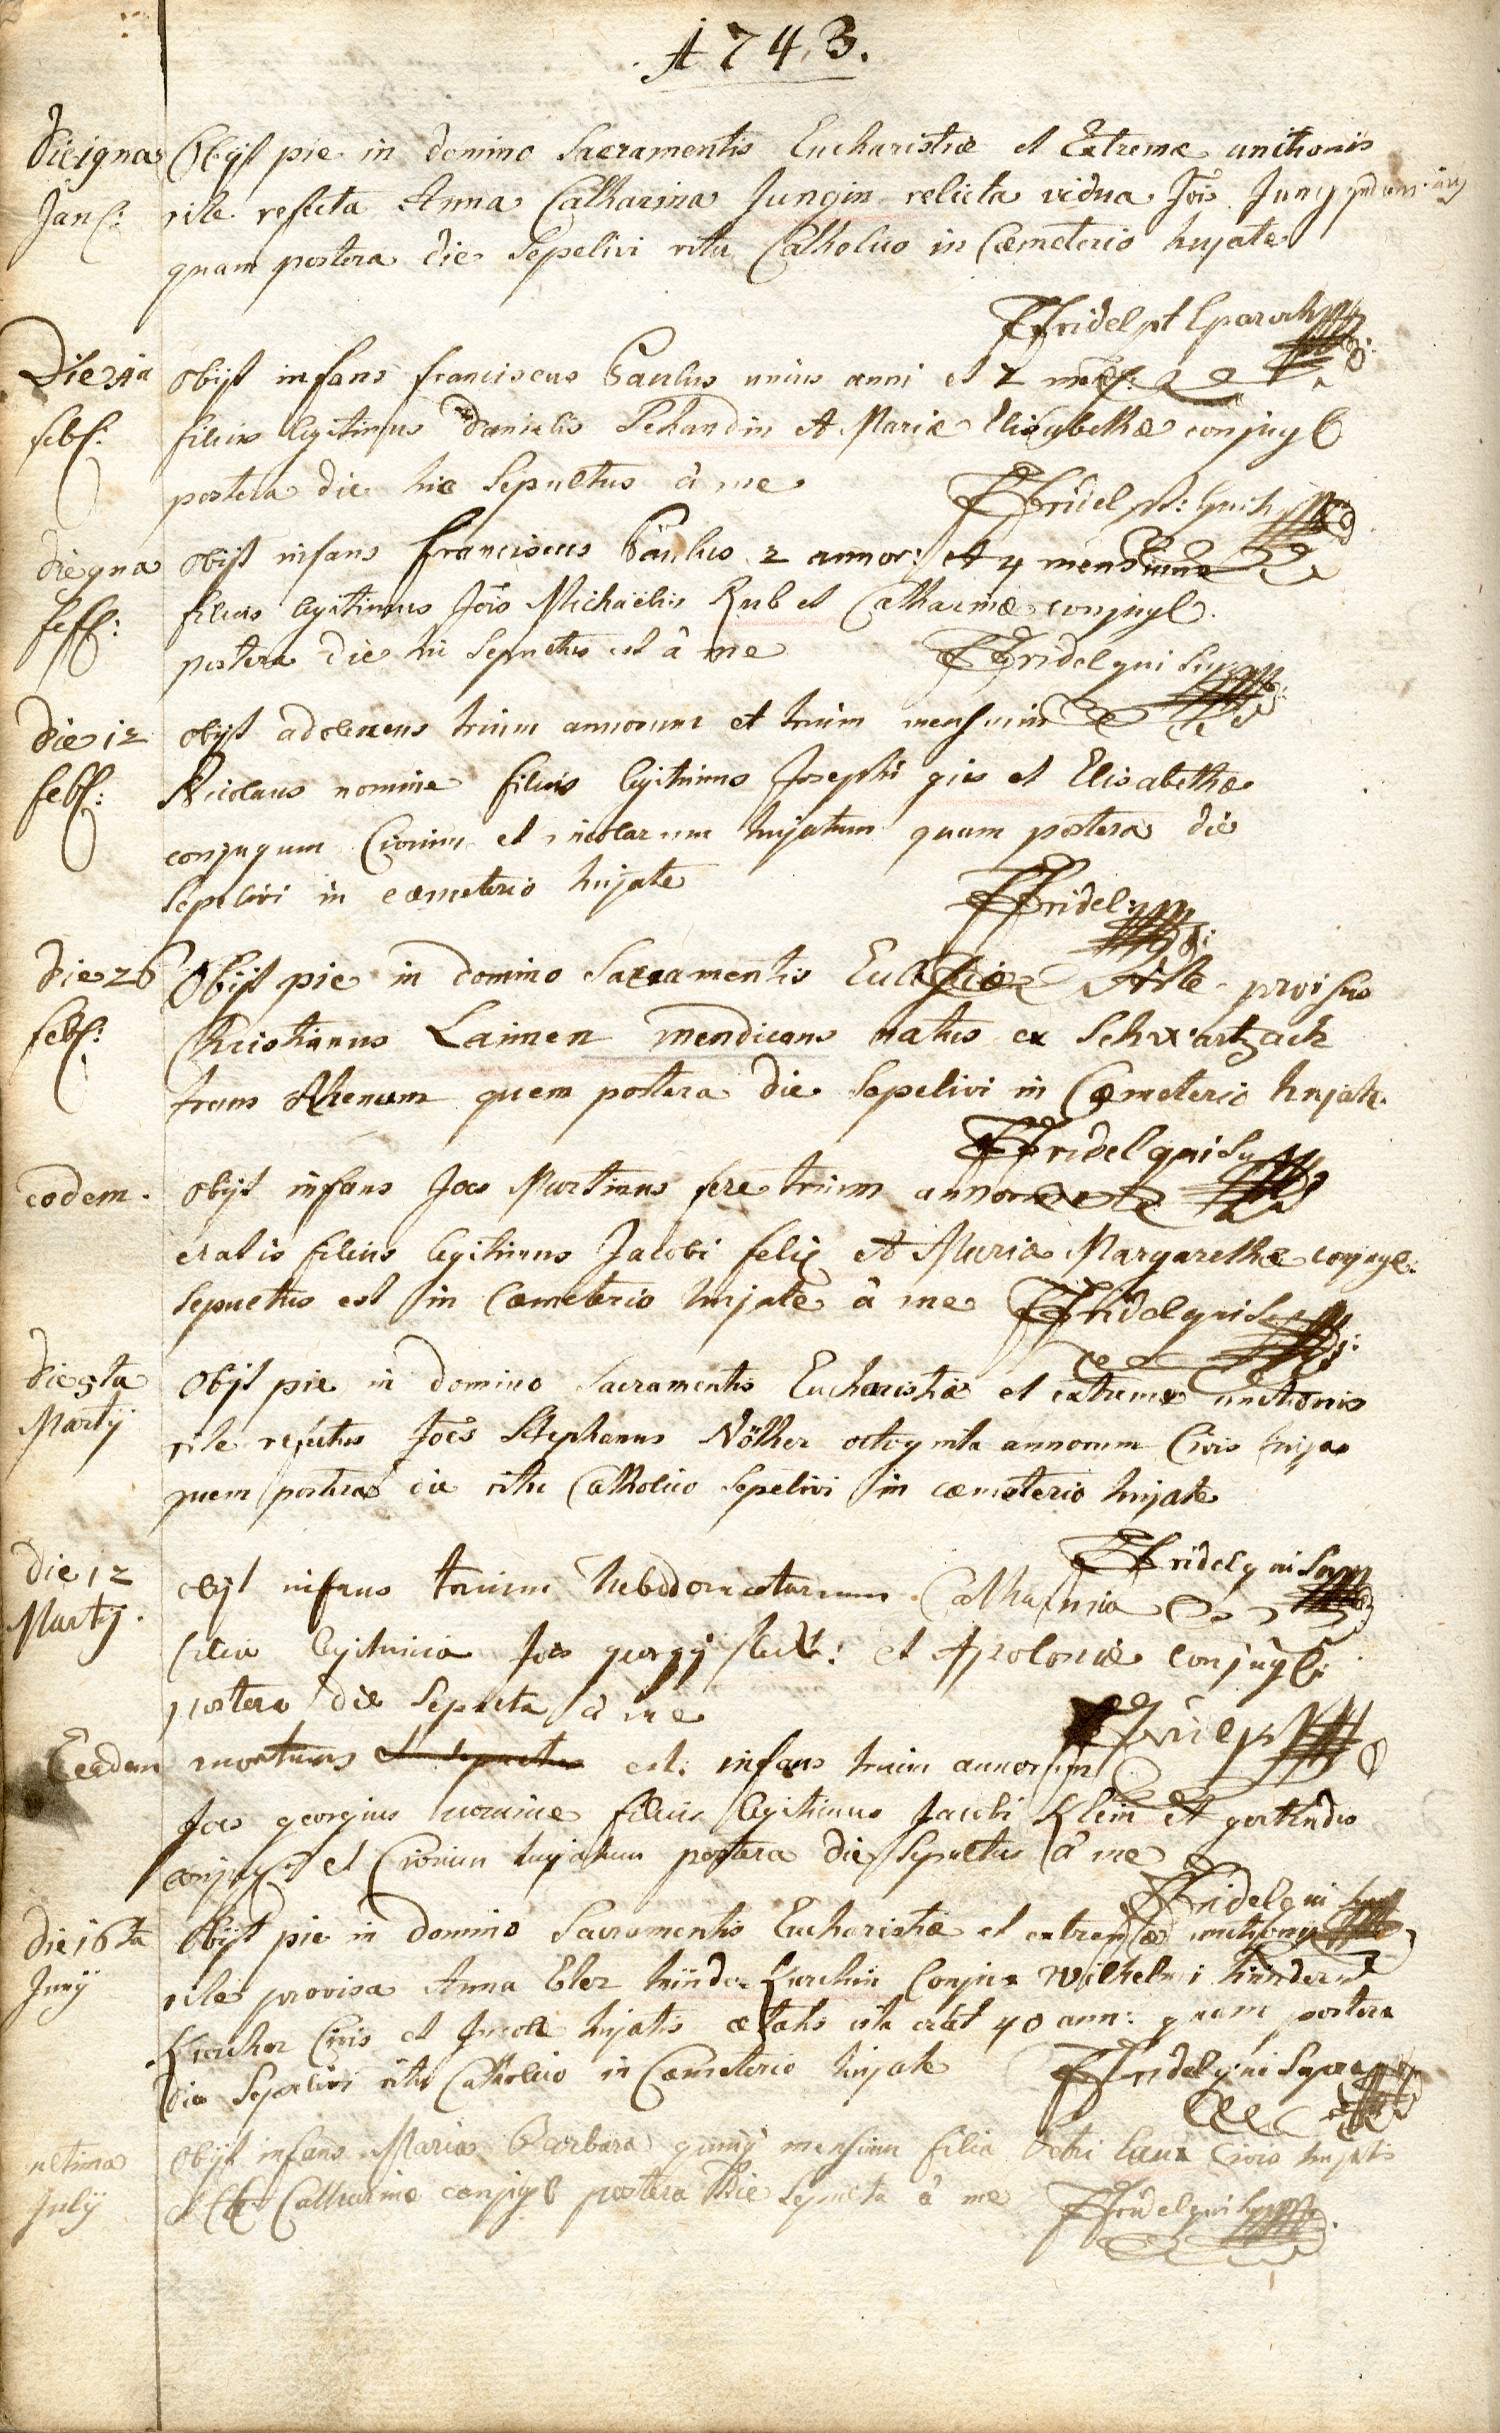 1743.
Die 9na Obijt pie in domino Sacramentis Eucharistiæ et Extremæ unctionis
Jan: rite refecta Anna Catharina Jungin relicta vidua Jois Jung
quam postera die Sepelivi ritu Catholico in Cœmeterio hujate
FFridel pt paroch
Die 4ta obijt infans franciscus Paulus unius anni et 2 mens:
feb: filius legitimus Danielis Schandin et Mariæ Elisabethæ conjug
postera die hic Sepultus à me
FFridel pt:
die 9na obijt infans franciscus Paulus 2 annor: et 4 mensium
feb: filius legitimus Jois Michaëlis Rub et Catharinæ conjug.
postera die hic Sepultus est à me FFridel qui Supra
die 12 obijt adolescens trium annorum et trium mensium
feb: Nicolaus nomine filius legitimus Josephi gies et Elisabethæ
conjugum Civium et incolarum hujatum quam postera die
Sepelivi in cœmeterio hujate
FFridel
die 26 Obijt pie in domino Sacramentis Euch rite provisus
feb: Christianus Laimen mendicans natus ex Schwartzach
trans Rhenum quem postera die Sepelivi in Cœmeterio hujate.
FFridel qui Su
eodem. obijt infans Joes Martinus fere trium annorum
etatis filius legitimus Jacobi felix et Mariæ Margarethæ conjug:
Sepultus est in Cœmeterio hujate à me FFridel qui Su
die 5ta obijt pie in Domino Sacramentis Eucharistiæ et extremæ unctionis
Martij rite refectus Joës Stephanus Nöther octoginta annorum Civis hujas
quem postera die ritu Catholico Sepelivi in cœmeterio hujate
FFridel qui Supra
die 12 obijt infans trium hebdomatarum Catharina
Martij. filia legitima Jois georgij et Apoloniæ conjug:
postera die Sepulta à me
Eadem mortuus et sepultus est: infans trium annorum
Joes georgius nomine filius legitimus Jacobi Klein et gertrudis
conjug: et Civium hujatum postera die Sepultus à me
FFridel qui Supra
die 16ta Obijt pie in Domino Sacramentis Eucharistiæ et extremæ unctionis
Junij rite provisa Anna Conjux Wilhelmi
Kircher Civis et Incolæ hujatis ætatis 40 ann: quam postera
die Sepelivi ritu Catholico in Cœmeterio hujate FFridel qui Supra
ultima obijt infans Maria Barbara mensium filia Petri Laux Civis hujatis
Julij et Catharinæ conjug postera die Sepulta à me FFridel qui Supra